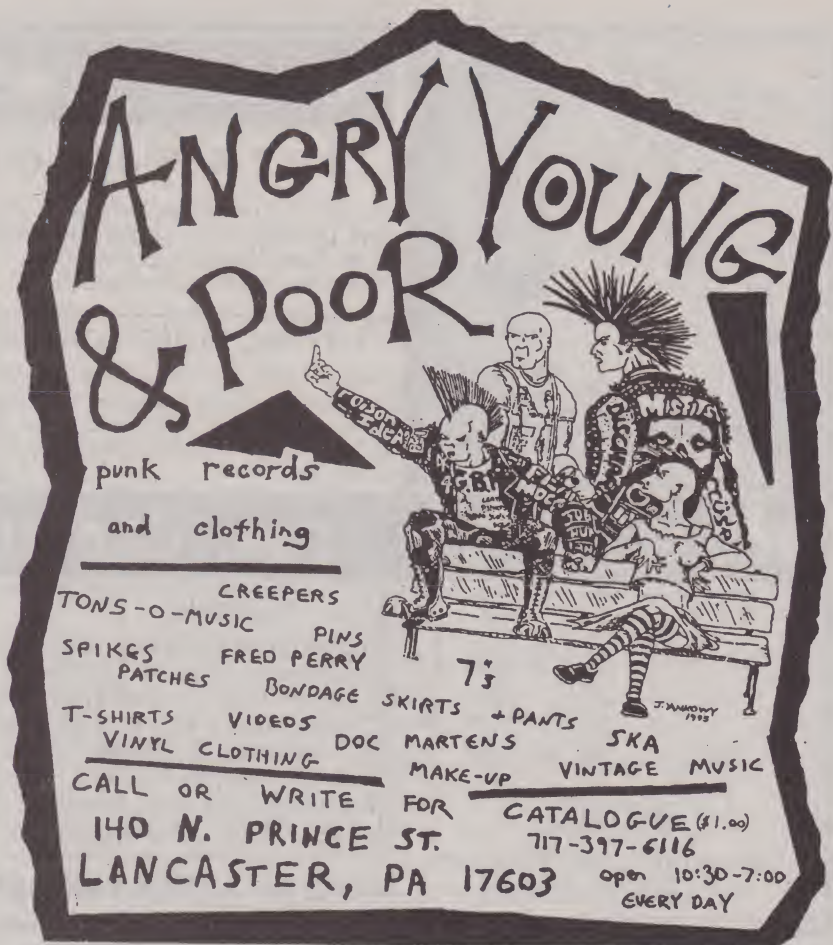 ANGRY YOUNG
& POOR
punk records
and clothing
POISON IDEA
MISFITS
G.B.H.
CREEPERS
TONS-O-MUSIC
PINS
SPIKES FRED PERRY
PATCHES
BONDAGE SKIRTS + PANTS
7"s
J. YANKOWY
1995
T-SHIRTS VIDEOS
DOC MARTENS SKA
VINYL CLOTHING
MAKE-UP VINTAGE MUSIC
CALL OR WRITE FOR CATALOGUE ($1.00)
140 N. PRINCE ST.
717-397-6116
LANCASTER, PA 17603
open 10:30-7:00
EVERY DAY